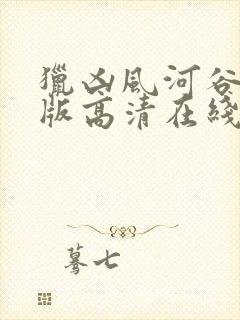 獵凶風河谷
版高清在綫
驀七